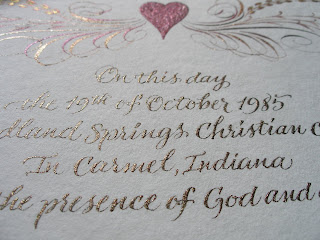 On this day
the 19th of October 1985
dland Springs Christian C
In Carmel, Indiana
he presence of God and